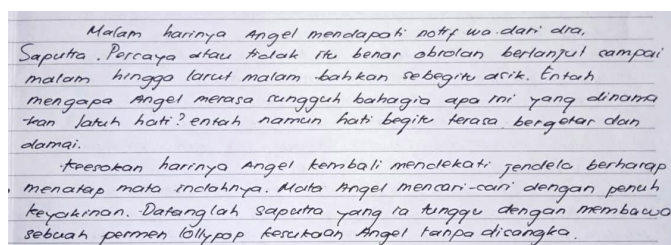 Malam harinya Angel mendapati notif wa dari dra.
Saputra. Percaya atau tidak itu benar obrolan berlanjut sampai
malam hingga larut malam bahkan sebegitu asik. Entah
mengapa Angel merasa sungguh bahagia apa ini yang dinama
-kan jatuh hati? entah namun hati begitu terasa bergetar dan
damai.
Keesokan harinya Angel kembali mendekati jendela berharap
menatap mata indahnya. Mata Angel mencari-cari dengan penuh
keyakinan. Datanglah saputra yang ia tunggu dengan membawa
sebuah permen lollypop kesukaan Angel tanpa disangka.